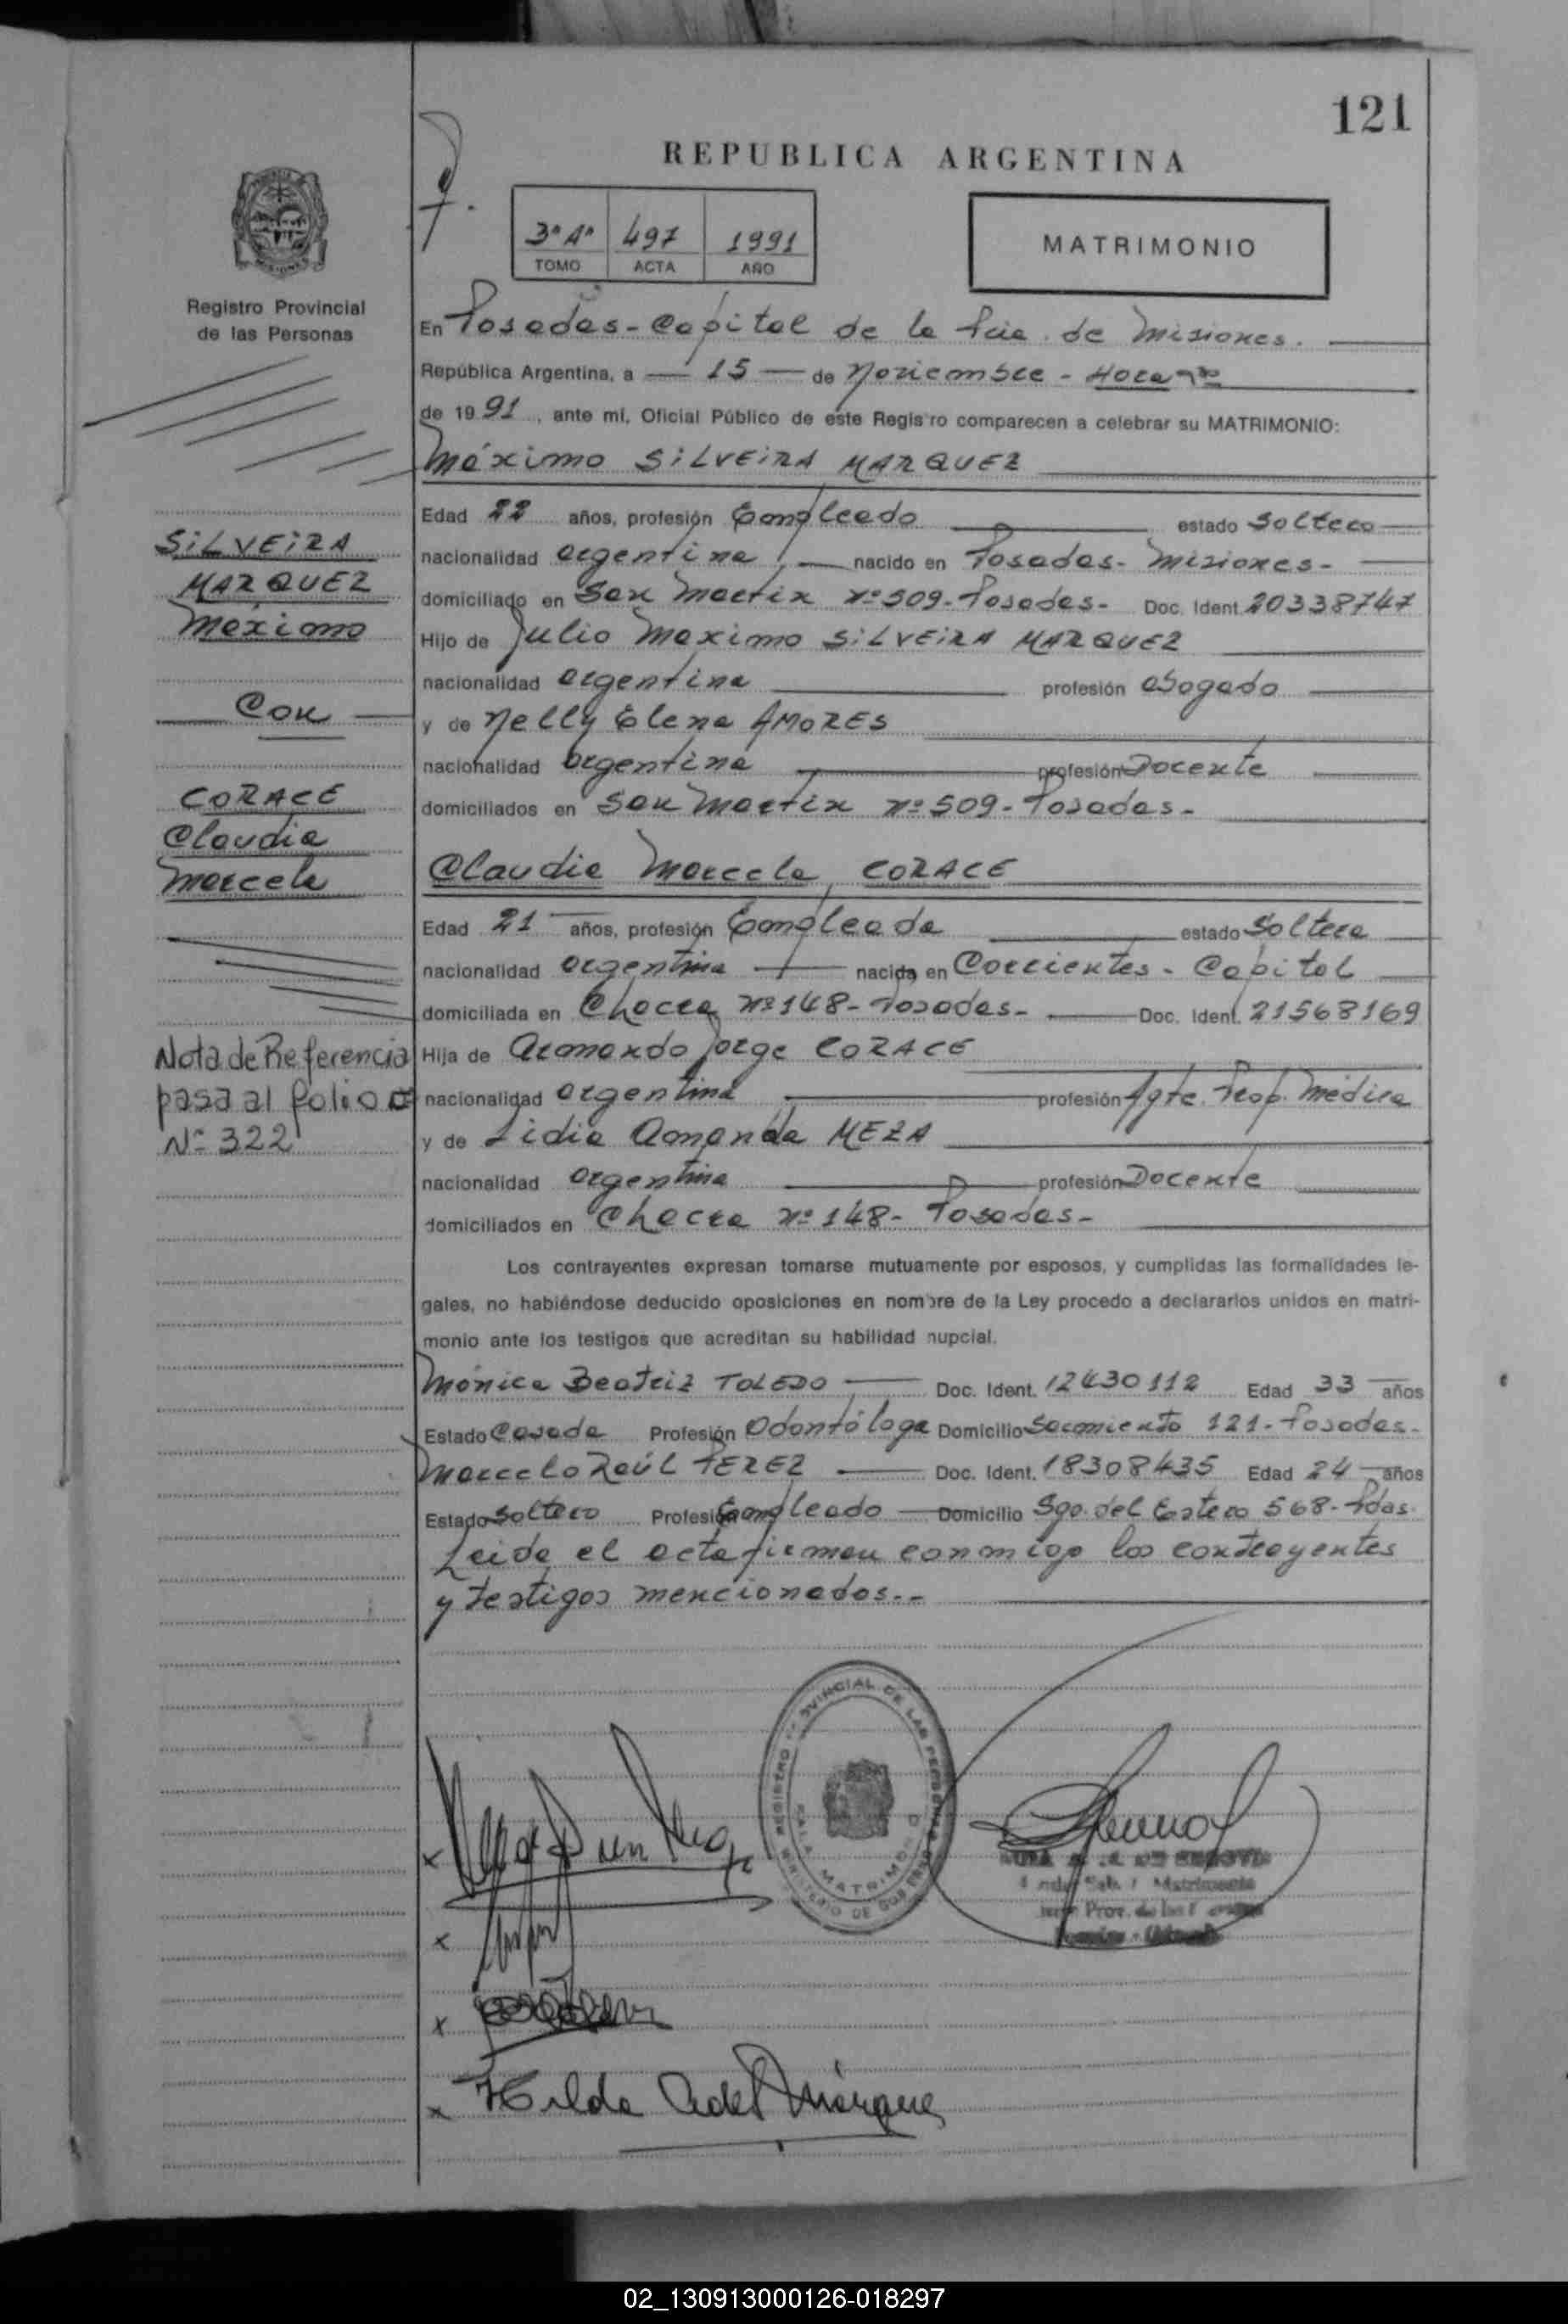 121
REPUBLICA ARGENTINA
3º Aº 497 1991
TOMO ACTA AÑO
MATRIMONIO
Registro Provincial
de las Personas
En Posadas - Capital de la Pcia. de Misiones.
República Argentina, a — 15 — de Noviembre - Hora
de 1991, ante mí, Oficial Público de este Registro comparecen a celebrar su MATRIMONIO:
Máximo SILVEIRA MARQUEZ
Edad 22 años, profesión Empleado estado Soltero
nacionalidad argentina nacido en Posadas - Misiones -
domiciliado en San Martín Nº 509 - Posadas - Doc. Ident. 20338747
Hijo de Julio Maximo SILVEIRA MARQUEZ
nacionalidad argentina profesión abogado
y de Nelly Elena AMORES
nacionalidad argentina profesión Docente
domiciliados en San Martín Nº 509 - Posadas -
Claudia Marcela CORACE
Edad 21 años, profesión Empleada estado Soltera
nacionalidad argentina nacida en Corrientes - Capital
domiciliada en Chacra Nº 148 - Posadas - Doc. Ident. 21568169
Hija de Armando Jorge CORACE
nacionalidad argentina profesión Agte. Prop. Médica
y de Lidia Amanda MEZA
nacionalidad argentina profesión Docente
domiciliados en Chacra Nº 148 - Posadas -
Los contrayentes expresan tomarse mutuamente por esposos, y cumplidas las formalidades le-
gales, no habiéndose deducido oposiciones en nombre de la Ley procedo a declararlos unidos en matri-
monio ante los testigos que acreditan su habilidad nupcial.
Mónica Beatriz TOLEDO Doc. Ident. 12430112 Edad 33 años
Estado Casada Profesión Odontóloga Domicilio Sarmiento 121 - Posadas -
Marcelo Raúl PEREZ Doc. Ident. 18308435 Edad 24 años
Estado Soltero Profesión Empleado Domicilio Sgo. del Estero 568 - Pdas.
Leida el acta firman conmigo los contrayentes
y testigos mencionados.--
SILVEIRA
MARQUEZ
Máximo
Con
CORACE
Claudia
Marcela
Nota de Referencia
pasa al folio
Nº 322
REGISTRO PROVINCIAL DE LAS PERSONAS
SALA MATRIMONIO
MINISTERIO DE GOBIERNO
Matrimonio
Prov. de las
Hilda
02_130913000126-018297